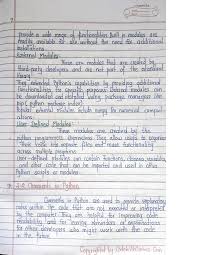 provide a wide range of functionalities built in modules are
readily available for use without the need for additional
installations.
External Modules:
These are modules that are created by
third-party developers and are not part of the standard
library.
They extend Python's capabilities by providing additional
functionalities for specific purposes. External modules can
be downloaded and installed using package managers like
pip (python package index)
Popular external modules include numpy for numerical compu-
tations.
User Defined Modules:
These modules are created by the
python programmers themselves. They allow users to organize
their code into separate files and reuse functionality
across multiple programs.
User-defined modules can contain functions, classes, variables,
and other code that can be imported and used in other
Python scripts or modules.
Comments in Python
Comments in Python are used to provide explanatory
notes within the code that are not executed or interpreted
by the computer. They are helpful for improving code
readability and for leaving reminders or explanations
for other developers who might work with the code
in the future.
Copyrighted by